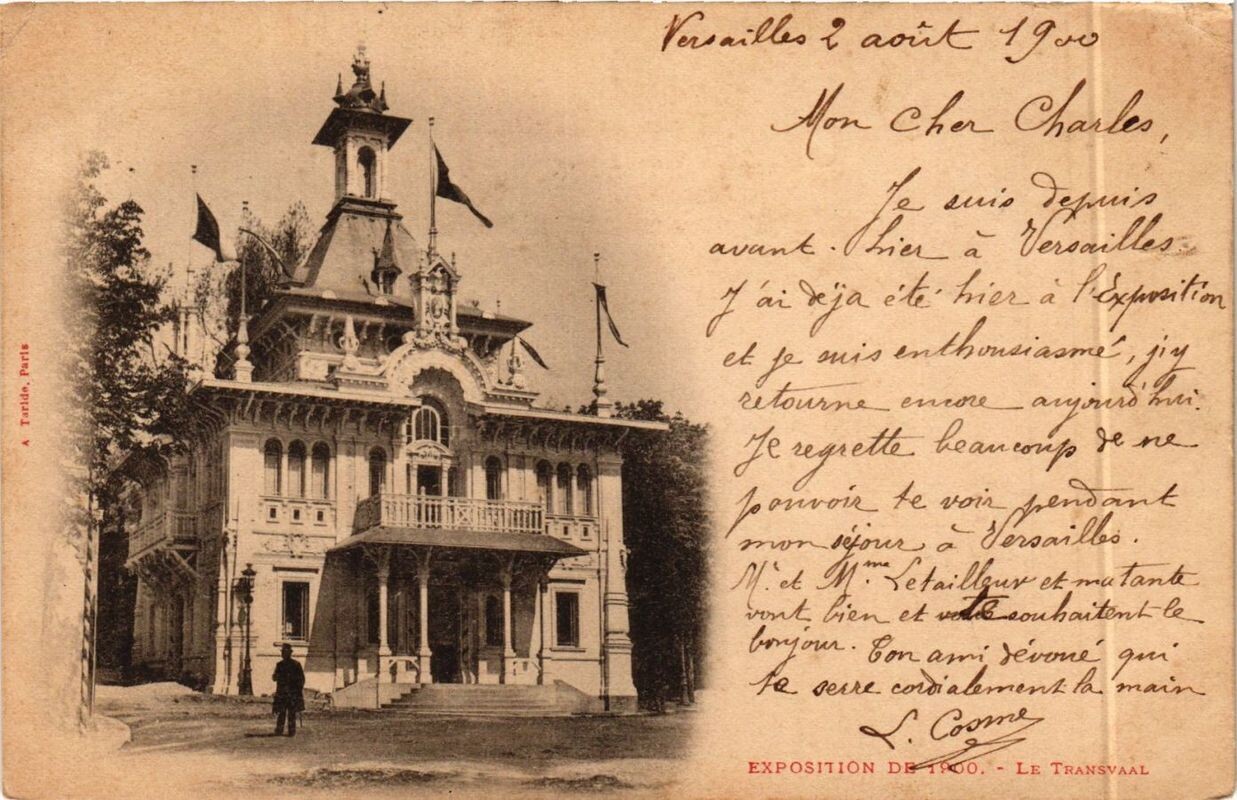 Versailles 2 août 1900
Mon cher Charles,
Je suis depuis
avant-hier à Versailles.
J'ai déja été hier à l'Exposition
et je suis enthousiasmé, j'y
retourne encore aujourd'hui.
Je regrette beaucoup de ne
pouvoir te voir pendant
mon séjour à Versailles.
Mr. et Mme Letailleur et ma tante
vont bien et te souhaitent le
bonjour. Ton ami dévoué qui
te serre cordialement la main
L. Cosme
A Taride, Paris
EXPOSITION DE 1900. - LE TRANSVAAL